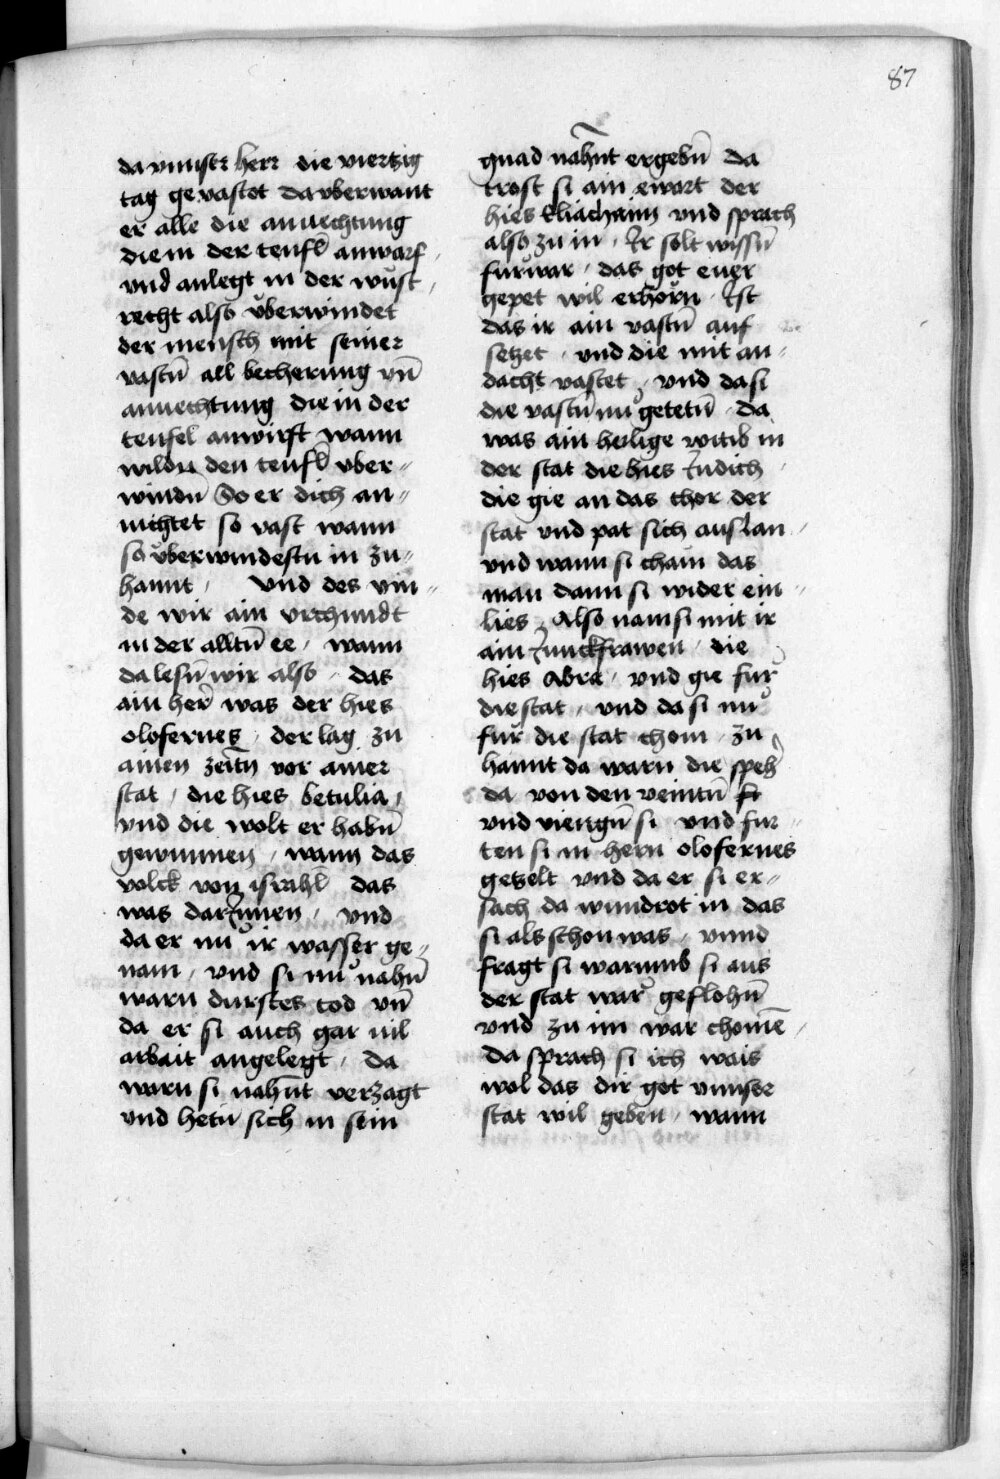 87
da vnnser herr die viertzig
tag gevastet da vberwant
er alle die anuechtung
die in der teufl̄ anwarf
vnd anlegt in der wůst
recht also vͤberwindet
der mensch mit seiner
vastn̄ all becherung vn̄
anuechtung die in der
teufel anwirft wann
wildu den teufl̄ vber〃
windn̄ So er dich an〃
uichtet so vast wann
so vͤberwindestu in zu〃
hannt / vnd des vin〃
de wir ain vrchundt
in der alltn̄ ee / wann
da lesn̄ wir also / das
ain her̄ was der hies
olofernes / der lag zu
ainen zeitn̄ vor ainer
stat / die hies betulia /
vnd die wolt er habn̄
gewinnen / wann das
volck von israhl̄ das
was darJnnen / vnd
da er nů ir wasser ge〃
nam / vnd si nů nahn̄
warn durstes tod vn̄
da er si auch gar vil
arbait angelegt / da
warn si nahn̄t verzagt
vnd hetn̄ sich in sein
gnad nahn̄t ergebn̄ da
trost si ain ewart der
hies Eliachaim vnd sprach
also zu in / Ir solt wissn̄
fůrwar / das got ewer
gepet wil erhörn / Ist
das ir ain vastn̄ auf
setzet / vnd die mit an〃
dacht vastet / vnd da si
die vastn̄ nů getetn̄ / da
was ain heilige witib in
der stat die hies Judich /
die gie an das thor der
stat vnd pat sich auslan /
vnd wann si cham das
man dann si wider ein〃
lies / Also nam si mit ir
ain Junckfrawen / die
hies Abra / vnd gie fůr
die stat / vnd da si nů
fůr die stat chom / zu
hannt da warn die speh̄
da von den veintn̄
vnd viengn̄ si vnd fur〃
ten si in hern olofernes
getzelt vnd da er si er〃
sach da wundrot in das
si als schon was / vnnd
fragt si warumb si aus
der stat war̄ geflohn̄
vnd zu im war chomē /
da sprach si ich wais
wol das dir got vnnser
stat wil geben / wann